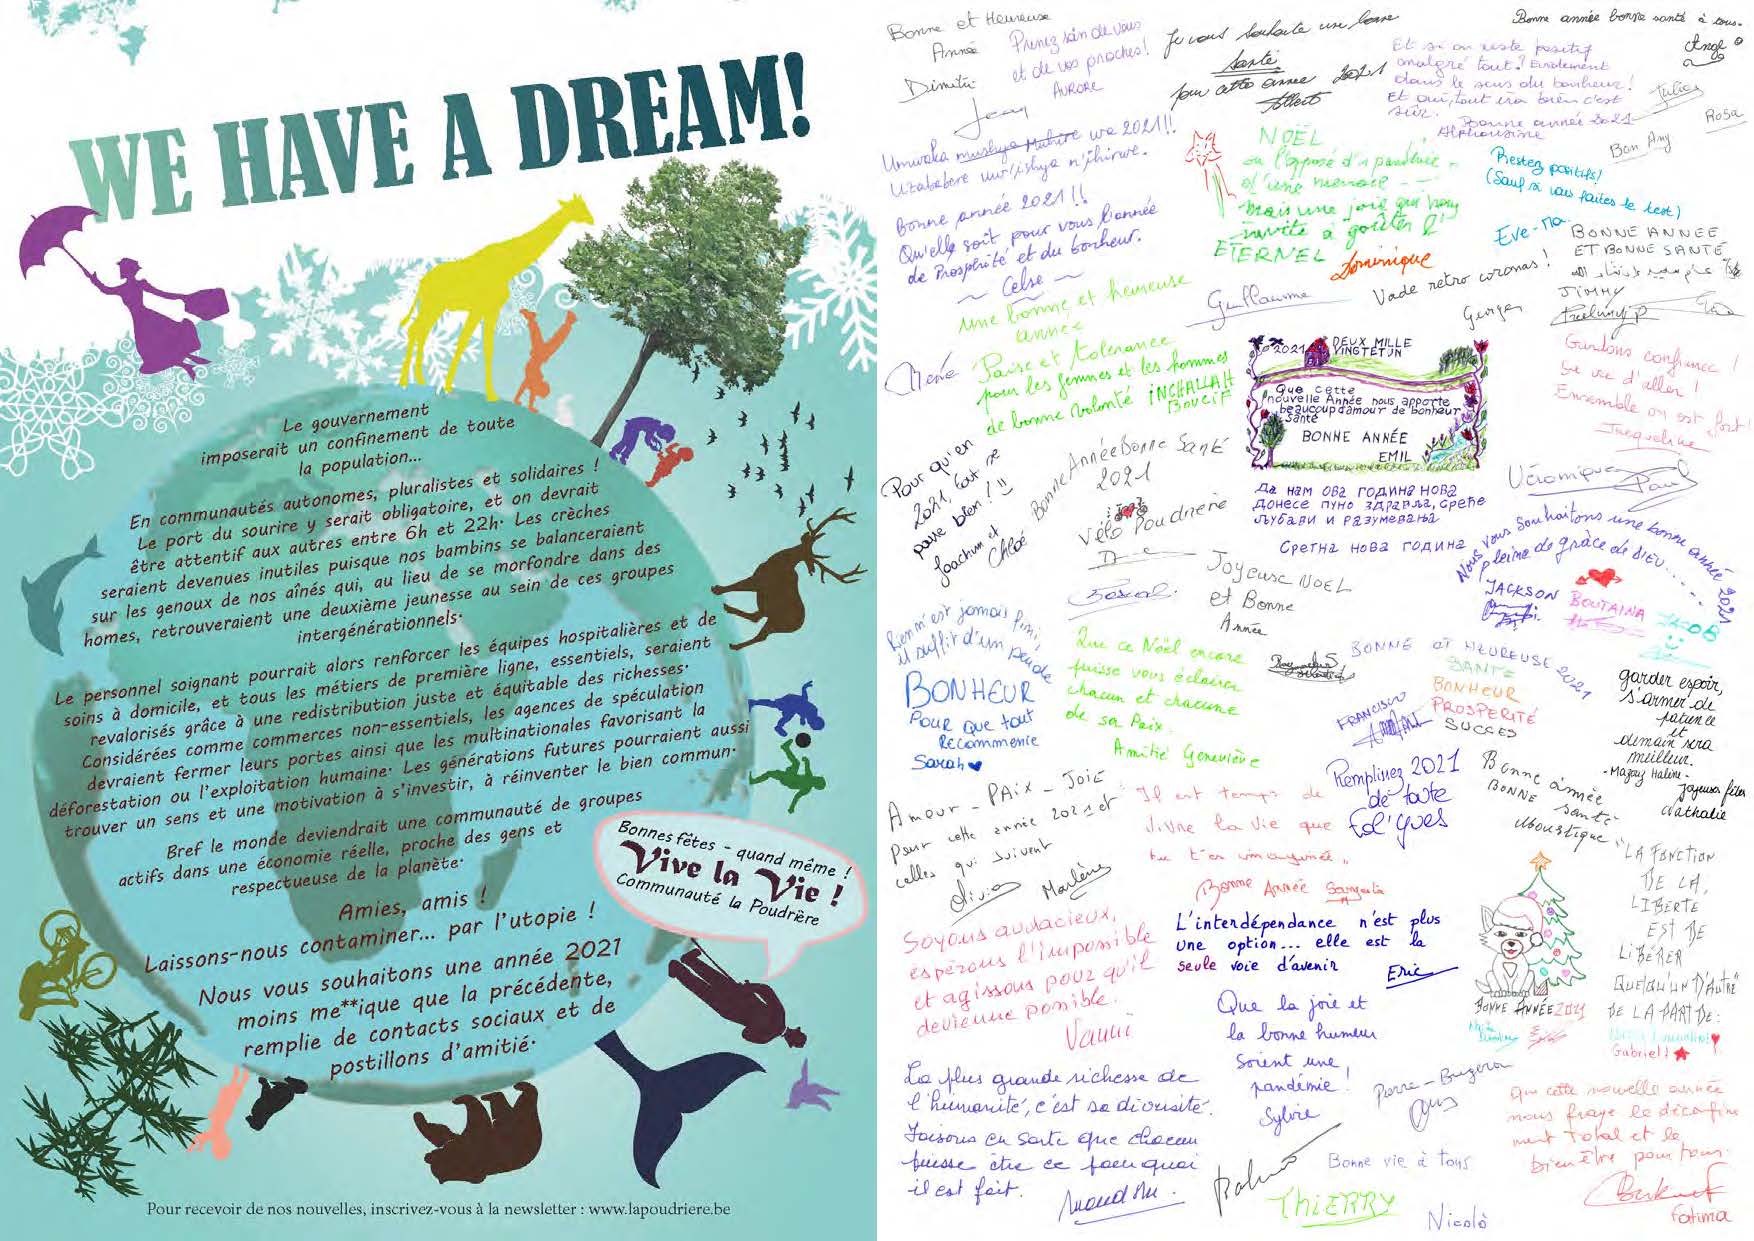 WE HAVE A DREAM!
Le gouvernement
imposerait un confinement de toute
la population...
En communautés autonomes, pluralistes et solidaires !
Le port du sourire y serait obligatoire, et on devrait
être attentif aux autres entre 6h et 22h. Les crèches
seraient devenues inutiles puisque nos bambins se balanceraient
sur les genoux de nos aînés qui, au lieu de se morfondre dans des
homes, retrouveraient une deuxième jeunesse au sein de ces groupes
intergénérationnels.
Le personnel soignant pourrait alors renforcer les équipes hospitalières et de
soins à domicile, et tous les métiers de première ligne, essentiels, seraient
revalorisés grâce à une redistribution juste et équitable des richesses.
Considérées comme commerces non-essentiels, les agences de spéculation
devraient fermer leurs portes ainsi que les multinationales favorisant la
déforestation ou l'exploitation humaine. Les générations futures pourraient aussi
trouver un sens et une motivation à s'investir, à réinventer le bien commun.
Bref le monde deviendrait une communauté de groupes
actifs dans une économie réelle, proche des gens et
respectueuse de la planète.
Amies, amis !
Laissons-nous contaminer... par l'utopie !
Nous vous souhaitons une année 2021
moins me**ique que la précédente,
remplie de contacts sociaux et de
postillons d'amitié.
Bonnes fêtes - quand même !
Vive la Vie !
Communauté la Poudrière
Pour recevoir de nos nouvelles, inscrivez-vous à la newsletter : www.lapoudriere.be
Bonne et Heureuse
Année
Dimitri
Prenez soin de vous
et de vos proches!
AURORE
Jean
Je vous souhaite une bonne
santé
pour cette année 2021
Albert
Bonne année bonne santé à tous.
Ange
Et si on reste positif
malgré tout? Evidement
dans le sens du bonheur!
Et oui, tout ira bien c'est
sûr. Bonne année 2021
Alphonsine
Julien
Rosa
Bon Any
Umwaka mushya Muhire wa 2021!!
Uzababere uw'ishya n'ihirwe.
Bonne année 2021!!
Qu'elle soit pour vous l'année
de Prospérité et du bonheur.
~ Celse ~
NOËL
ou l'opposé d'1 pandémie -
d'une menace --
mais une joie qui nous
invite à goûter l'
ETERNEL
Dominique
Restez positifs!
(Sauf si vous faites le test)
Eve-na
BONNE ANNEE
ET BONNE SANTÉ
JIMMY
Guillaume
Vade retro coronas!
Georges
une bonne et heureuse
année
Paise et tolérance
pour les femmes et les hommes
de bonne volonté INCHALLAH
BOUCIF
René
2021 DEUX MILLE
VINGTETUN
Que cette
nouvelle Année nous apporte
beaucoup d'amour de bonheur
santé
BONNE ANNÉE
EMIL
Да нам ова година нова
донесе пуно здравља, среће
љубави и разумевања
Сретна нова година
Gardons confiance!
Se vie d'aller!
Ensemble on est fort!
Jacqueline
Véronique
Paul
Pour qu'en
2021, tout se
passe bien!
Joachim et
Chloé
Bonne Année Bonne Santé
2021
Vélo Poudrière
Pascal
JOYEUSE NOEL
et Bonne
Année
Nous vous souhaitons une bonne année 2021
pleine de grâce de DIEU.....
JACKSON
BOUTAINA
JACOB
Rien n'est jamais fini,
il suffit d'un peu de
BONHEUR
Pour que tout
Recommence
Sarah
Que ce Noël encore
puisse vous éclairer
chacun et chacune
de sa Paix.
Amitié Geneviève
BONNE et HEUREUSE 2021
SANTE
BONHEUR
PROSPERITÉ
SUCCES
FRANCISCO
garder espoir,
s'armer de
patience
et
demain sera
meilleur.
- Mazay Halène -
joyeuses fêtes
Nathalie
Amour - PAix - Joie
Pour cette année 2021 et
celles qui suivent
Olivia
Marlène
Il est temps de
vivre la vie que
tu t'es imaginée"
Bonne Année
Remplissez 2021
de toute
Fol'Yves
Bonne année
BONNE santé
Moustique
Soyons audacieux,
espérons l'impossible
et agissons pour qu'il
devienne possible.
Vanni
L'interdépendance n'est plus
une option... elle est la
seule voie d'avenir
Eric
BONNE ANNÉE 2021
LA FONCTION
DE LA,
LIBERTE
EST DE
LIBÉRER
QUELQU'UN D'AUTRE"
DE LA PART DE:
Gabriel!
La plus grande richesse de
l'humanité, c'est sa diversité.
Faisons en sorte que chacun
puisse être ce pourquoi
il est fait.
Que la joie et
la bonne humeur
Soient une
pandémie!
Sylvie
Bonne vie à tous
THIERRY
Nicolò
Que cette nouvelle année
nous fraye le déconfine
ment total et le
bien être pour tous.
Fatima